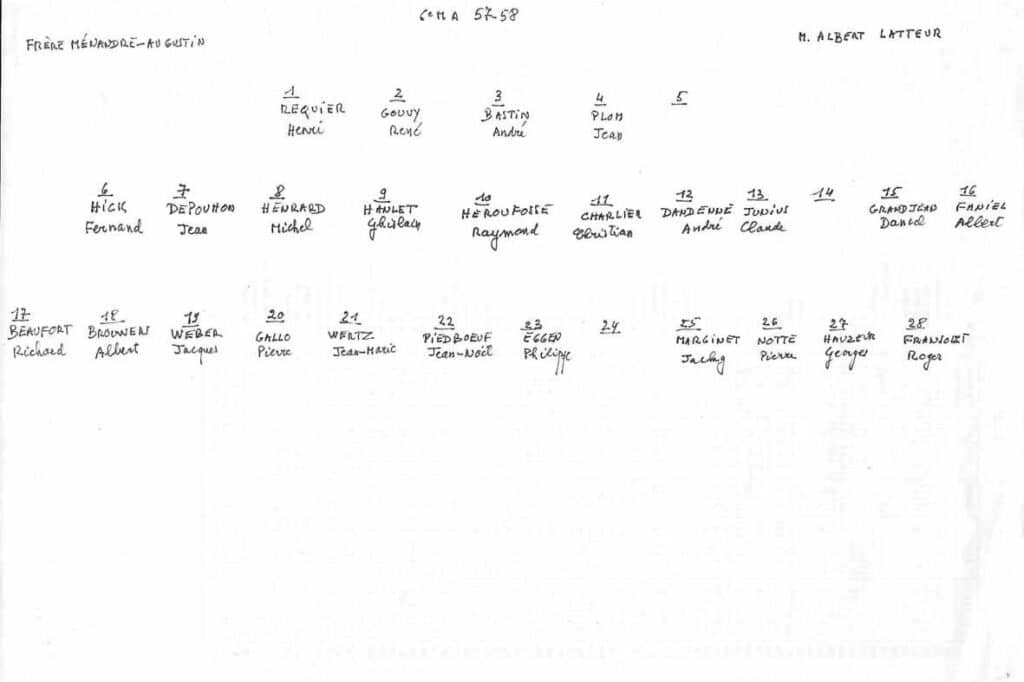 6e M A 57-58
FRÈRE MÉNANDRE-AUGUSTIN M. ALBERT LATTEUR
1 2 3 4 5
REQUIER GOUVY BASTIN PLOM
Henri René André Jean
6 7 8 9 10 11 12 13 14 15 16
HICK DEPOUHON HENRARD HANLET HEROUFOSSE CHARLIER DANDENNE JUNIUS GRANDJEAN FANIEL
Fernand Jean Michel Ghislain Raymond Christian André Claude Daniel Albert
17 18 19 20 21 22 23 24 25 26 27 28
BEAUFORT BROUWERS WEBER GALLO WERTZ PIEDBOEUF EGGEN MARGINET NOTTE HAUZEUR
Richard Albert Jacques Pierre Jean-Marie Jean-Noël Philippe Jacky Pierre Georges Roger